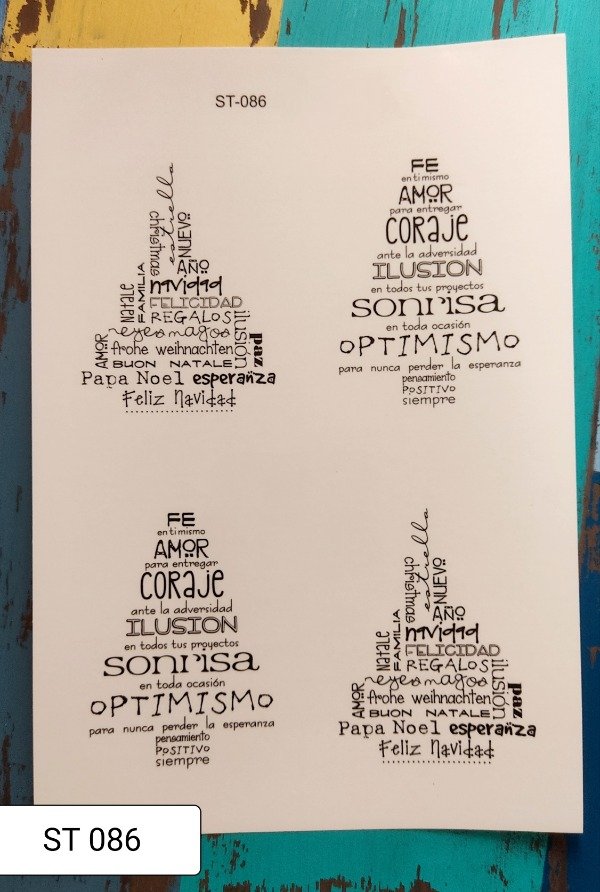 ST-086
estrella
christmas
NUEVO
AÑO
Natale
FAMILIA
navidad
FELICIDAD
REGALOS
ilusión
reyes magos
AMOR
frohe weihnachten
paz
BUON NATALE
Papa Noel esperanza
Feliz Navidad
FE
en ti mismo
AMOR
para entregar
CORAJE
ante la adversidad
ILUSION
en todos tus proyectos
sonrisa
en toda ocasión
OPTIMISMO
para nunca perder la esperanza
pensamiento
POSITIVO
siempre
FE
en ti mismo
AMOR
para entregar
CORAJE
ante la adversidad
ILUSION
en todos tus proyectos
sonrisa
en toda ocasión
OPTIMISMO
para nunca perder la esperanza
pensamiento
POSITIVO
siempre
estrella
christmas
NUEVO
AÑO
Natale
FAMILIA
navidad
FELICIDAD
REGALOS
ilusión
reyes magos
AMOR
frohe weihnachten
paz
BUON NATALE
Papa Noel esperanza
Feliz Navidad
ST 086